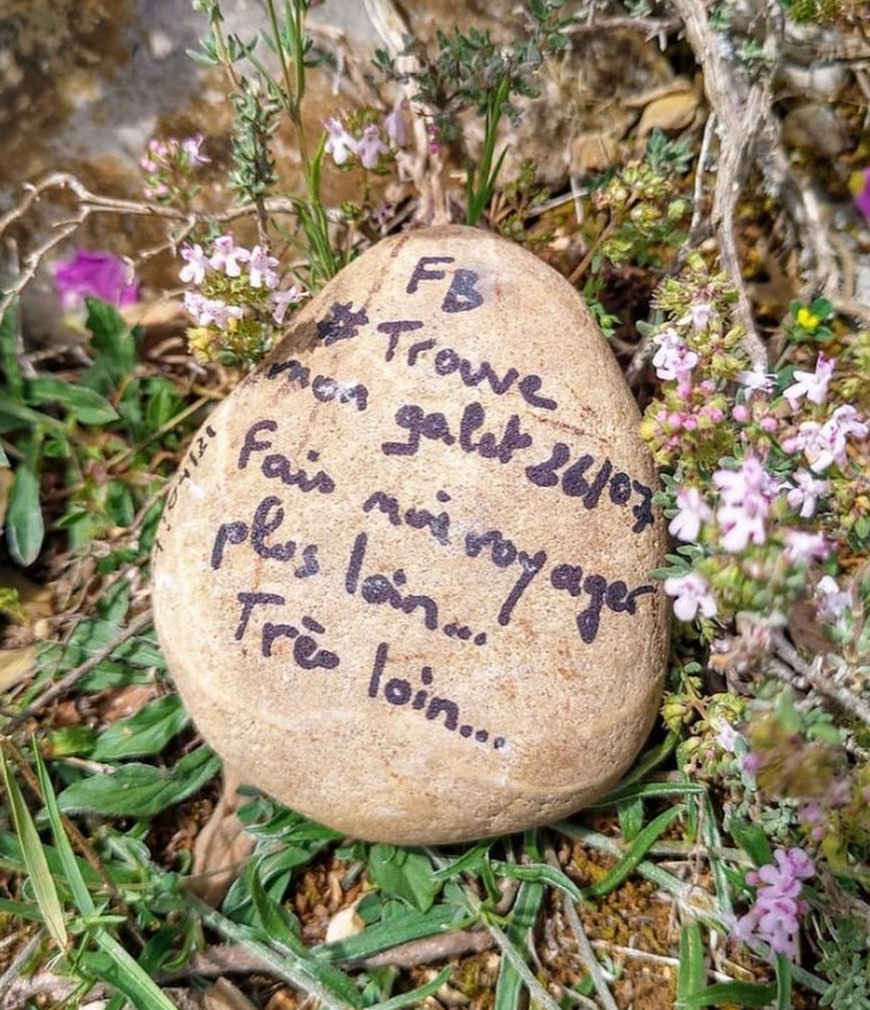 FB
* Trouve
mon galet 26/07
Fais moi voyager
plus loin...
Très loin...